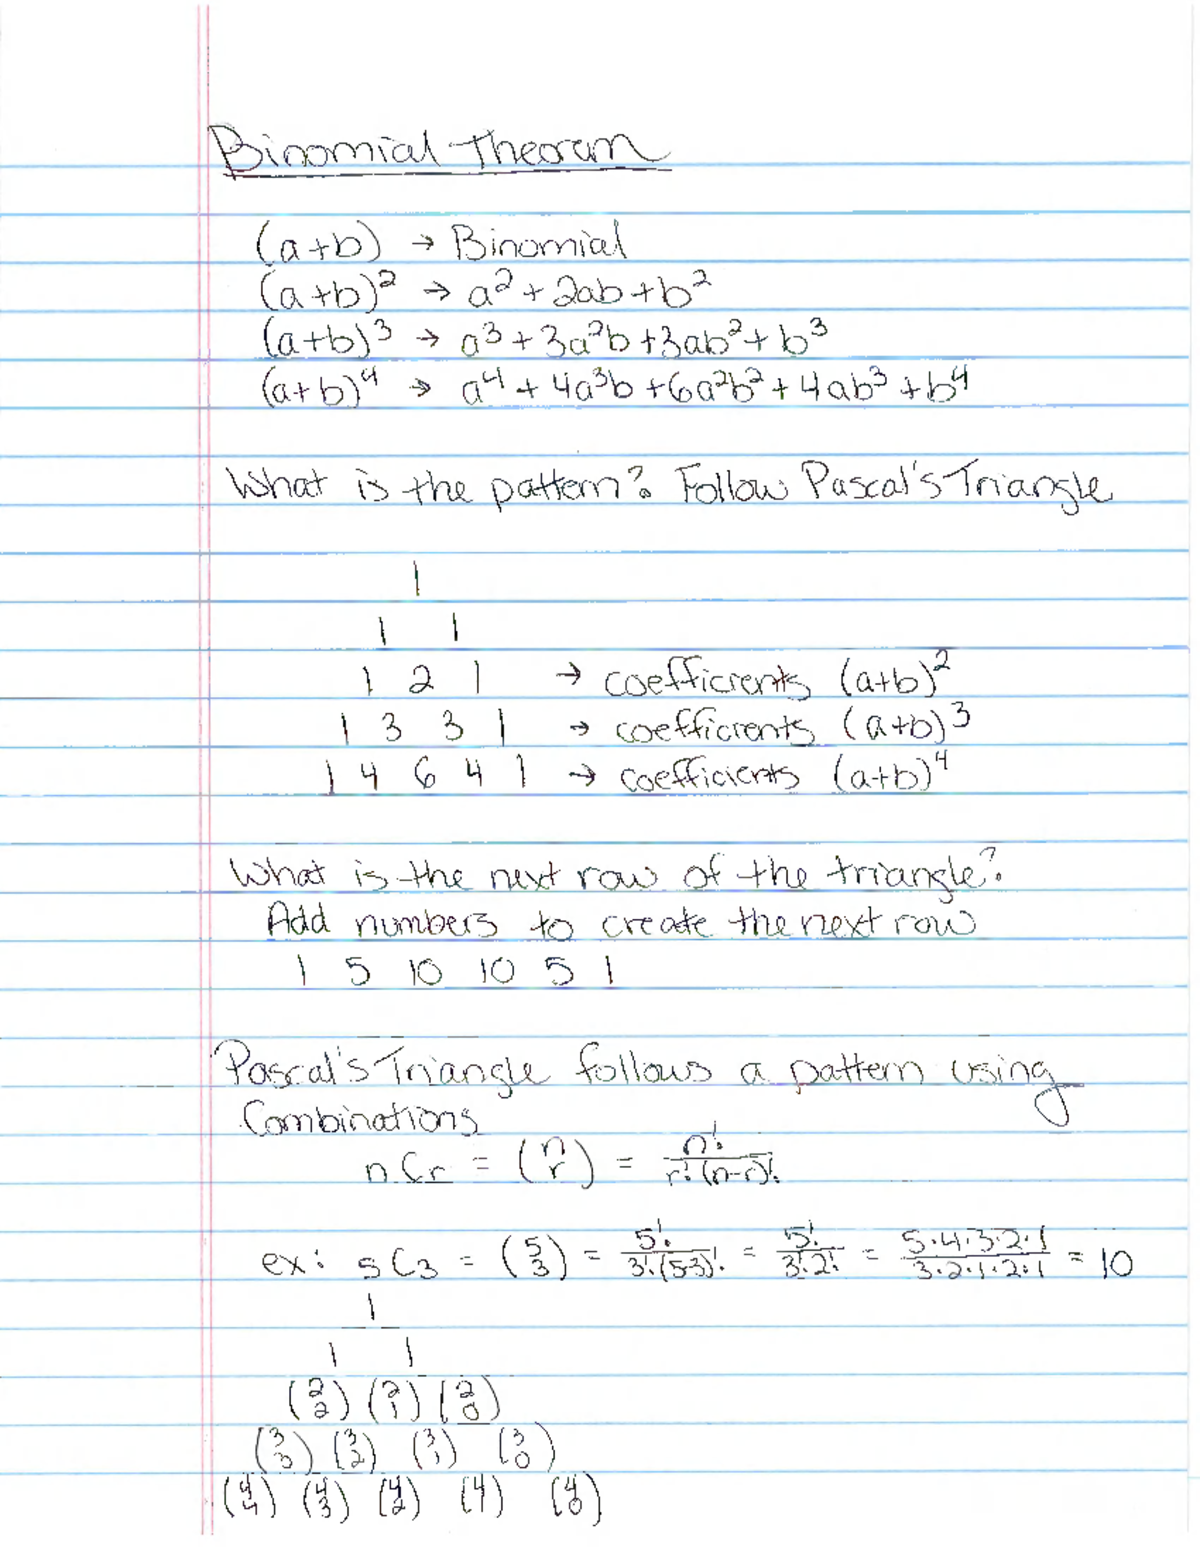 Binomial Theorem
(a+b) → Binomial
(a+b)² → a² + 2ab + b²
(a+b)³ → a³ + 3a²b + 3ab² + b³
(a+b)⁴ → a⁴ + 4a³b + 6a²b² + 4ab³ + b⁴
What is the pattern? Follow Pascal's Triangle
1
1 1
1 2 1 → coefficients (a+b)²
1 3 3 1 → coefficients (a+b)³
1 4 6 4 1 → coefficients (a+b)⁴
What is the next row of the triangle?
Add numbers to create the next row
1 5 10 10 5 1
Pascal's Triangle follows a pattern using
Combinations
nCr = (n r) = n!/r!(n-r)!
ex: 5C3 = (5 3) = 5!/3!(5-3)! = 5!/3!2! = 5·4·3·2·1/3·2·1·2·1 = 10
1
1 1
(2 2) (2 1) (2 0)
(3 3) (3 2) (3 1) (3 0)
(4 4) (4 3) (4 2) (4) (4 0)